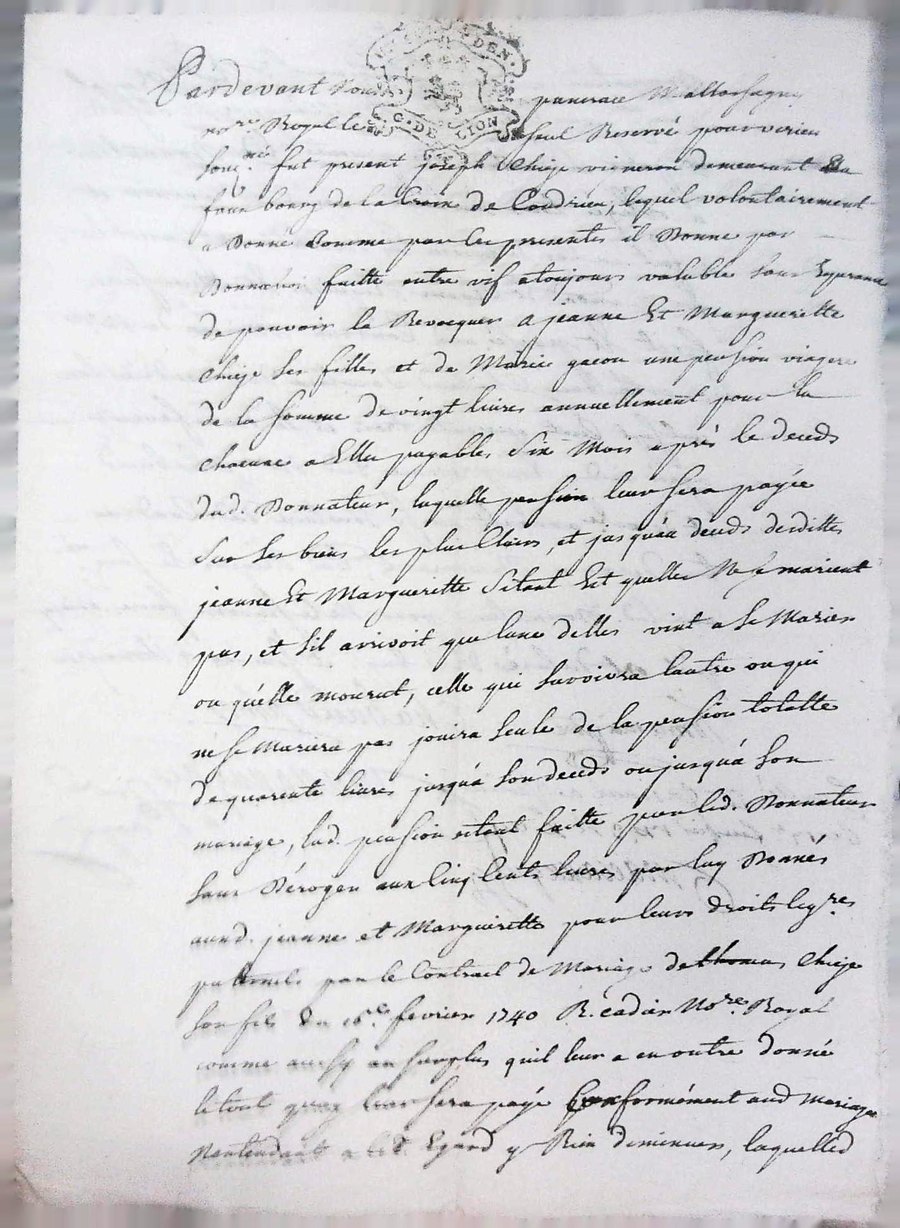 DEN.
G. DE LION
Pardevant Nous pancrace Mallassagny
no.re Royal le seul Reservé pour verieu
souq.né fut present joseph Chieze vigneron demeurant au
faux bourg de la Croix de Condrieu, lequel volontairement
a Donné Comme par les presentes il Donne par
Donnaôn faitte entre vif atoujours valuble sans Esperance
de pouvoir la Revocquer a jeanne Et Marguerette
Chieze ses filles et de Marie gacon une pension viagere
de la somme de vingt livres annuellement pour la
chacune a Elles payables, Six Mois après le deceds
dud. Donnateur, laquelle pension leur sera payée
Sur ses biens les plus Clairs, et jusqu'au deceds desdittes
jeanne Et Marguerette Sitant Est quelles Ne se marient
pas, et sil arrivoit que lune delles vint a se Marier
ou quélle mourut, celle qui survivra lautre ou qui
ne se Mariera pas jouira seule de la pension totalle
de quarente livres jusquá son deceds ou jusquá son
mariage, lad. pension étant faitte par led. Donnateur
sans Déroger aux Cinq Cents livres par luy Donnés
auxd. jeanne et Marguerette pour leurs droits leg.res
paternels par le Contract de Mariage de thomas Chieze
son fils du 16.e fevrier 1740 R. cadier No.re Royal
comme aussy au surplus quil leur a en outre donné
le tout quoy leur sera payé Conformément aud Mariage
Nentendant a cet Egard y Rien diminuer, laquelled